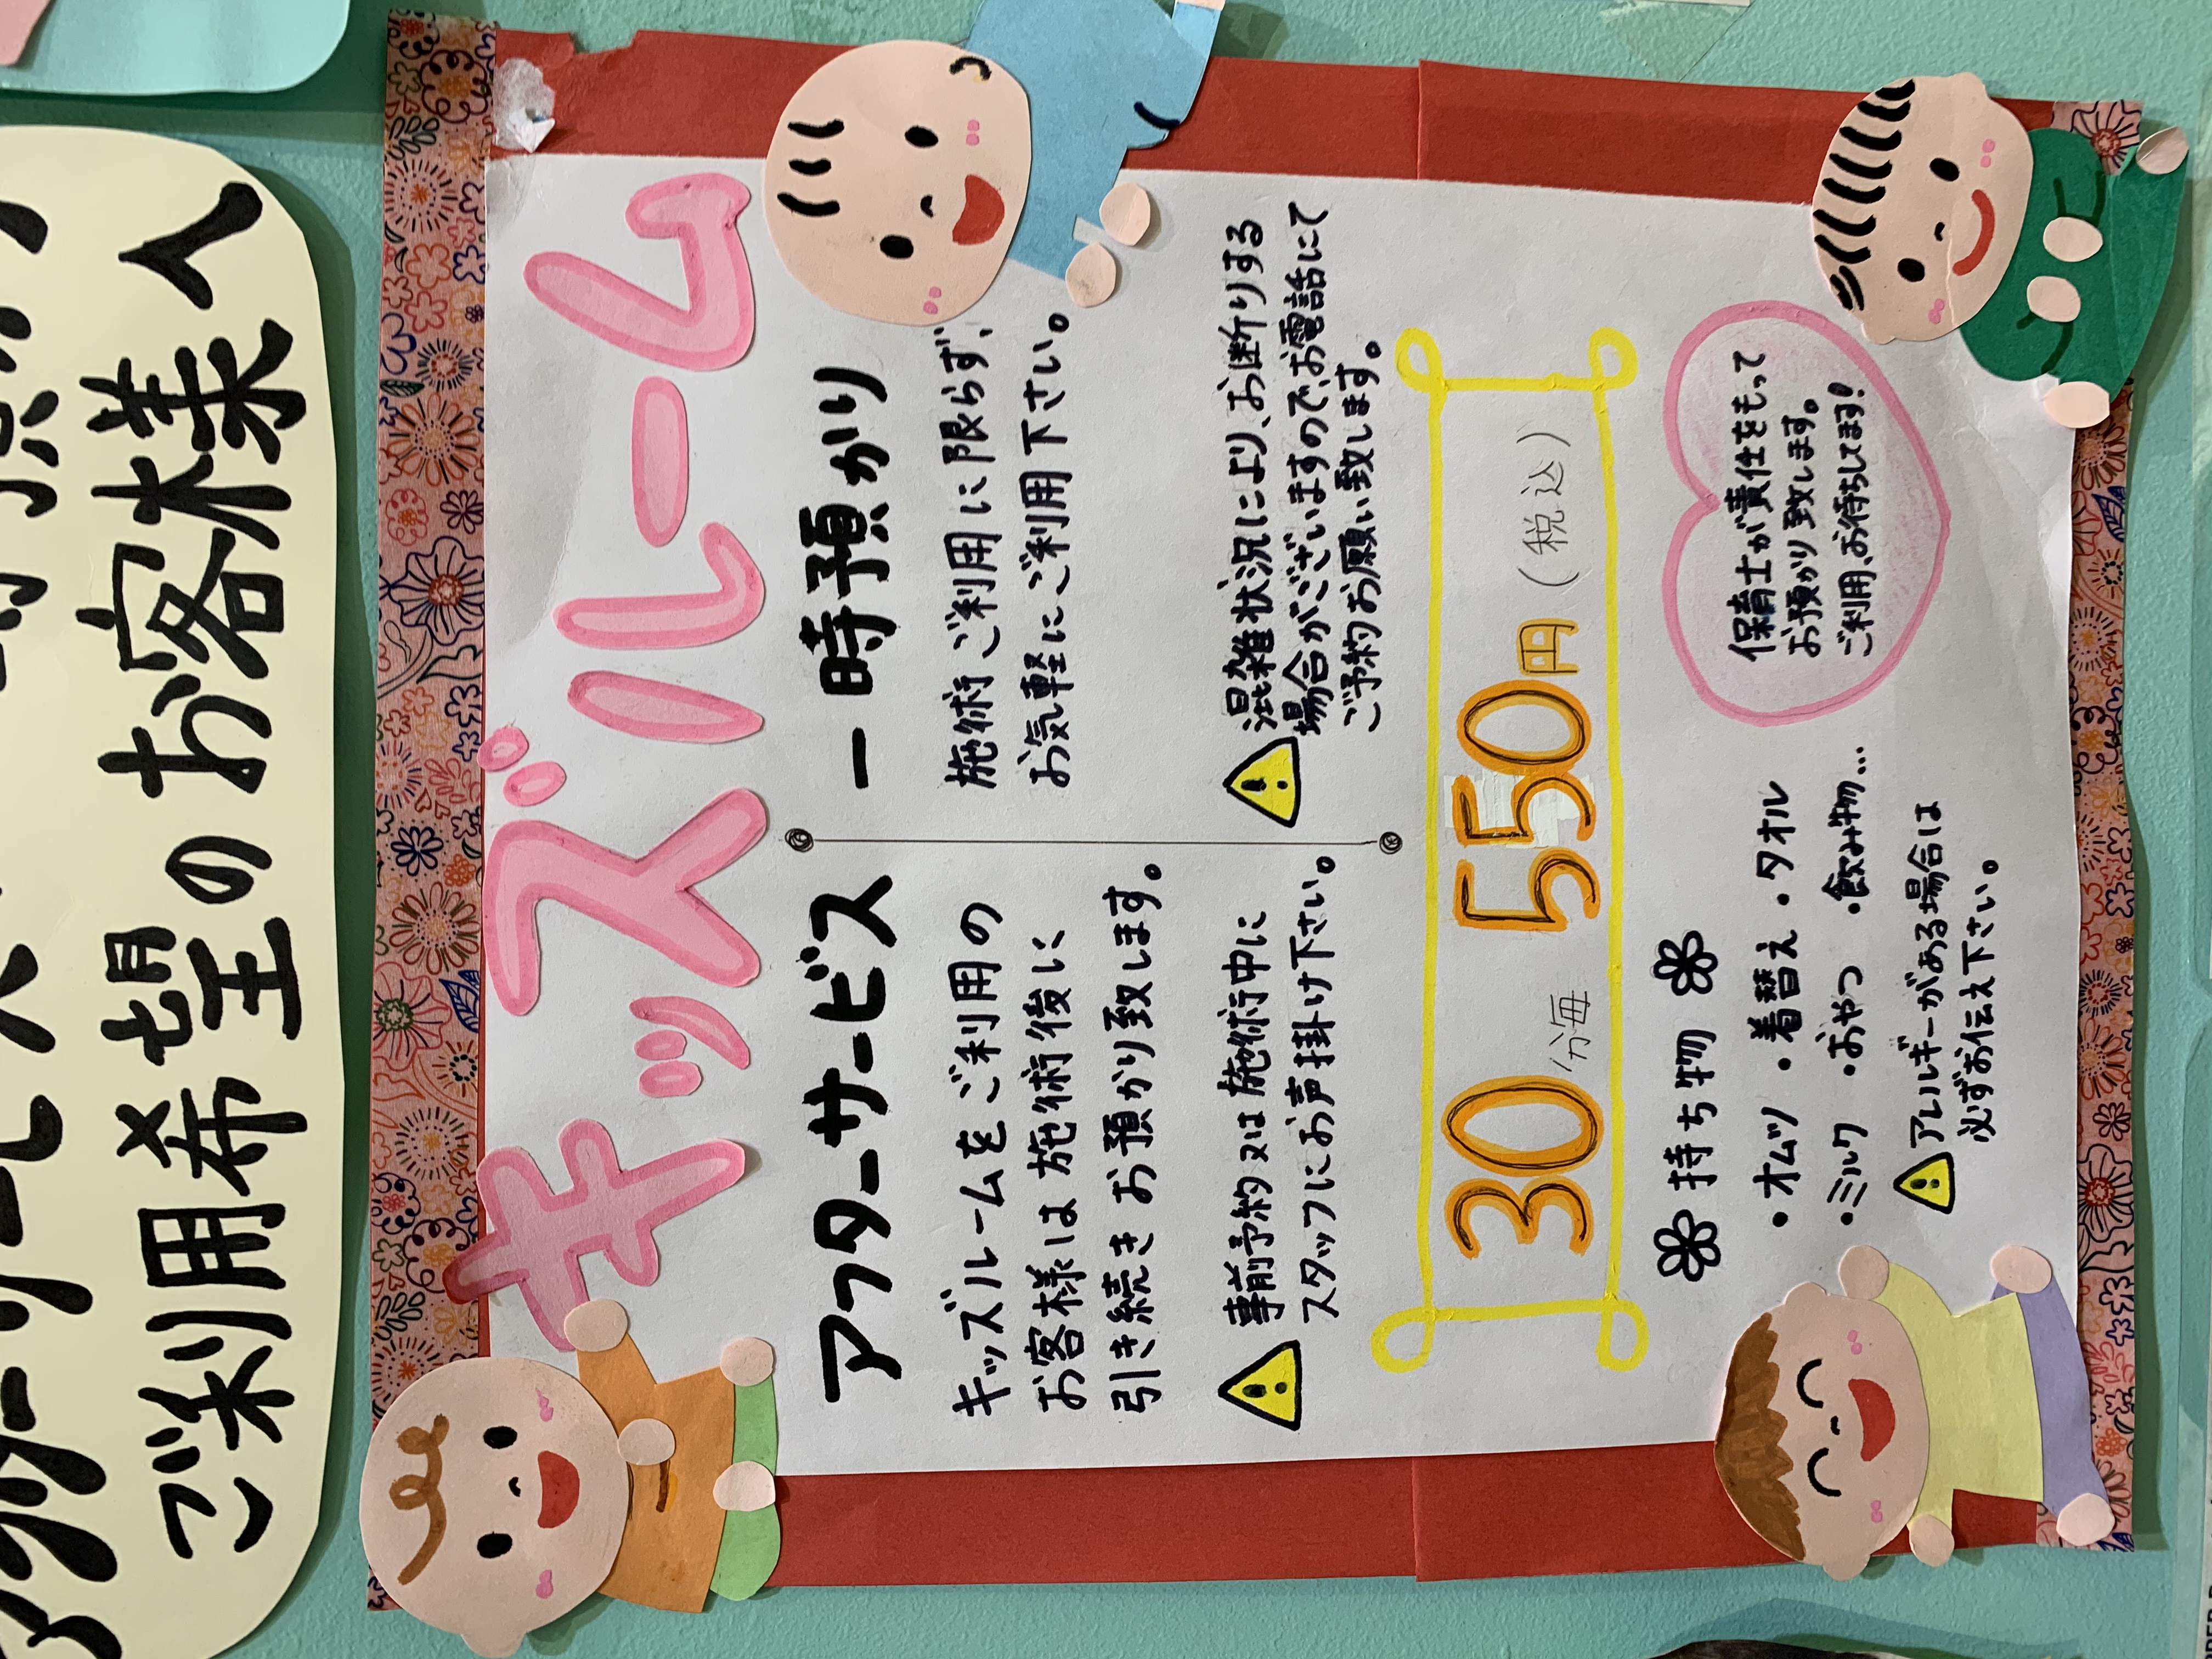 ご利用希望のお客様へ
キッズルーム
アフターサービス
キッズルームをご利用の
お客様は施術後に
引き続きお預かり致します。
事前予約又は施術中に
スタッフにお声掛け下さい。
一時預かり
施術ご利用に限らず、
お気軽にご利用下さい。
混雑状況により、お断りする
場合がございますので、お電話にて
ご予約お願い致します。
30分毎 550円(税込)
持ち物
・オムツ ・着替え ・タオル
・ミルク ・おやつ ・飲み物…
アレルギーがある場合は
必ずお伝え下さい。
保育士が責任をもって
お預かり致します。
ご利用、お待ちしてます!